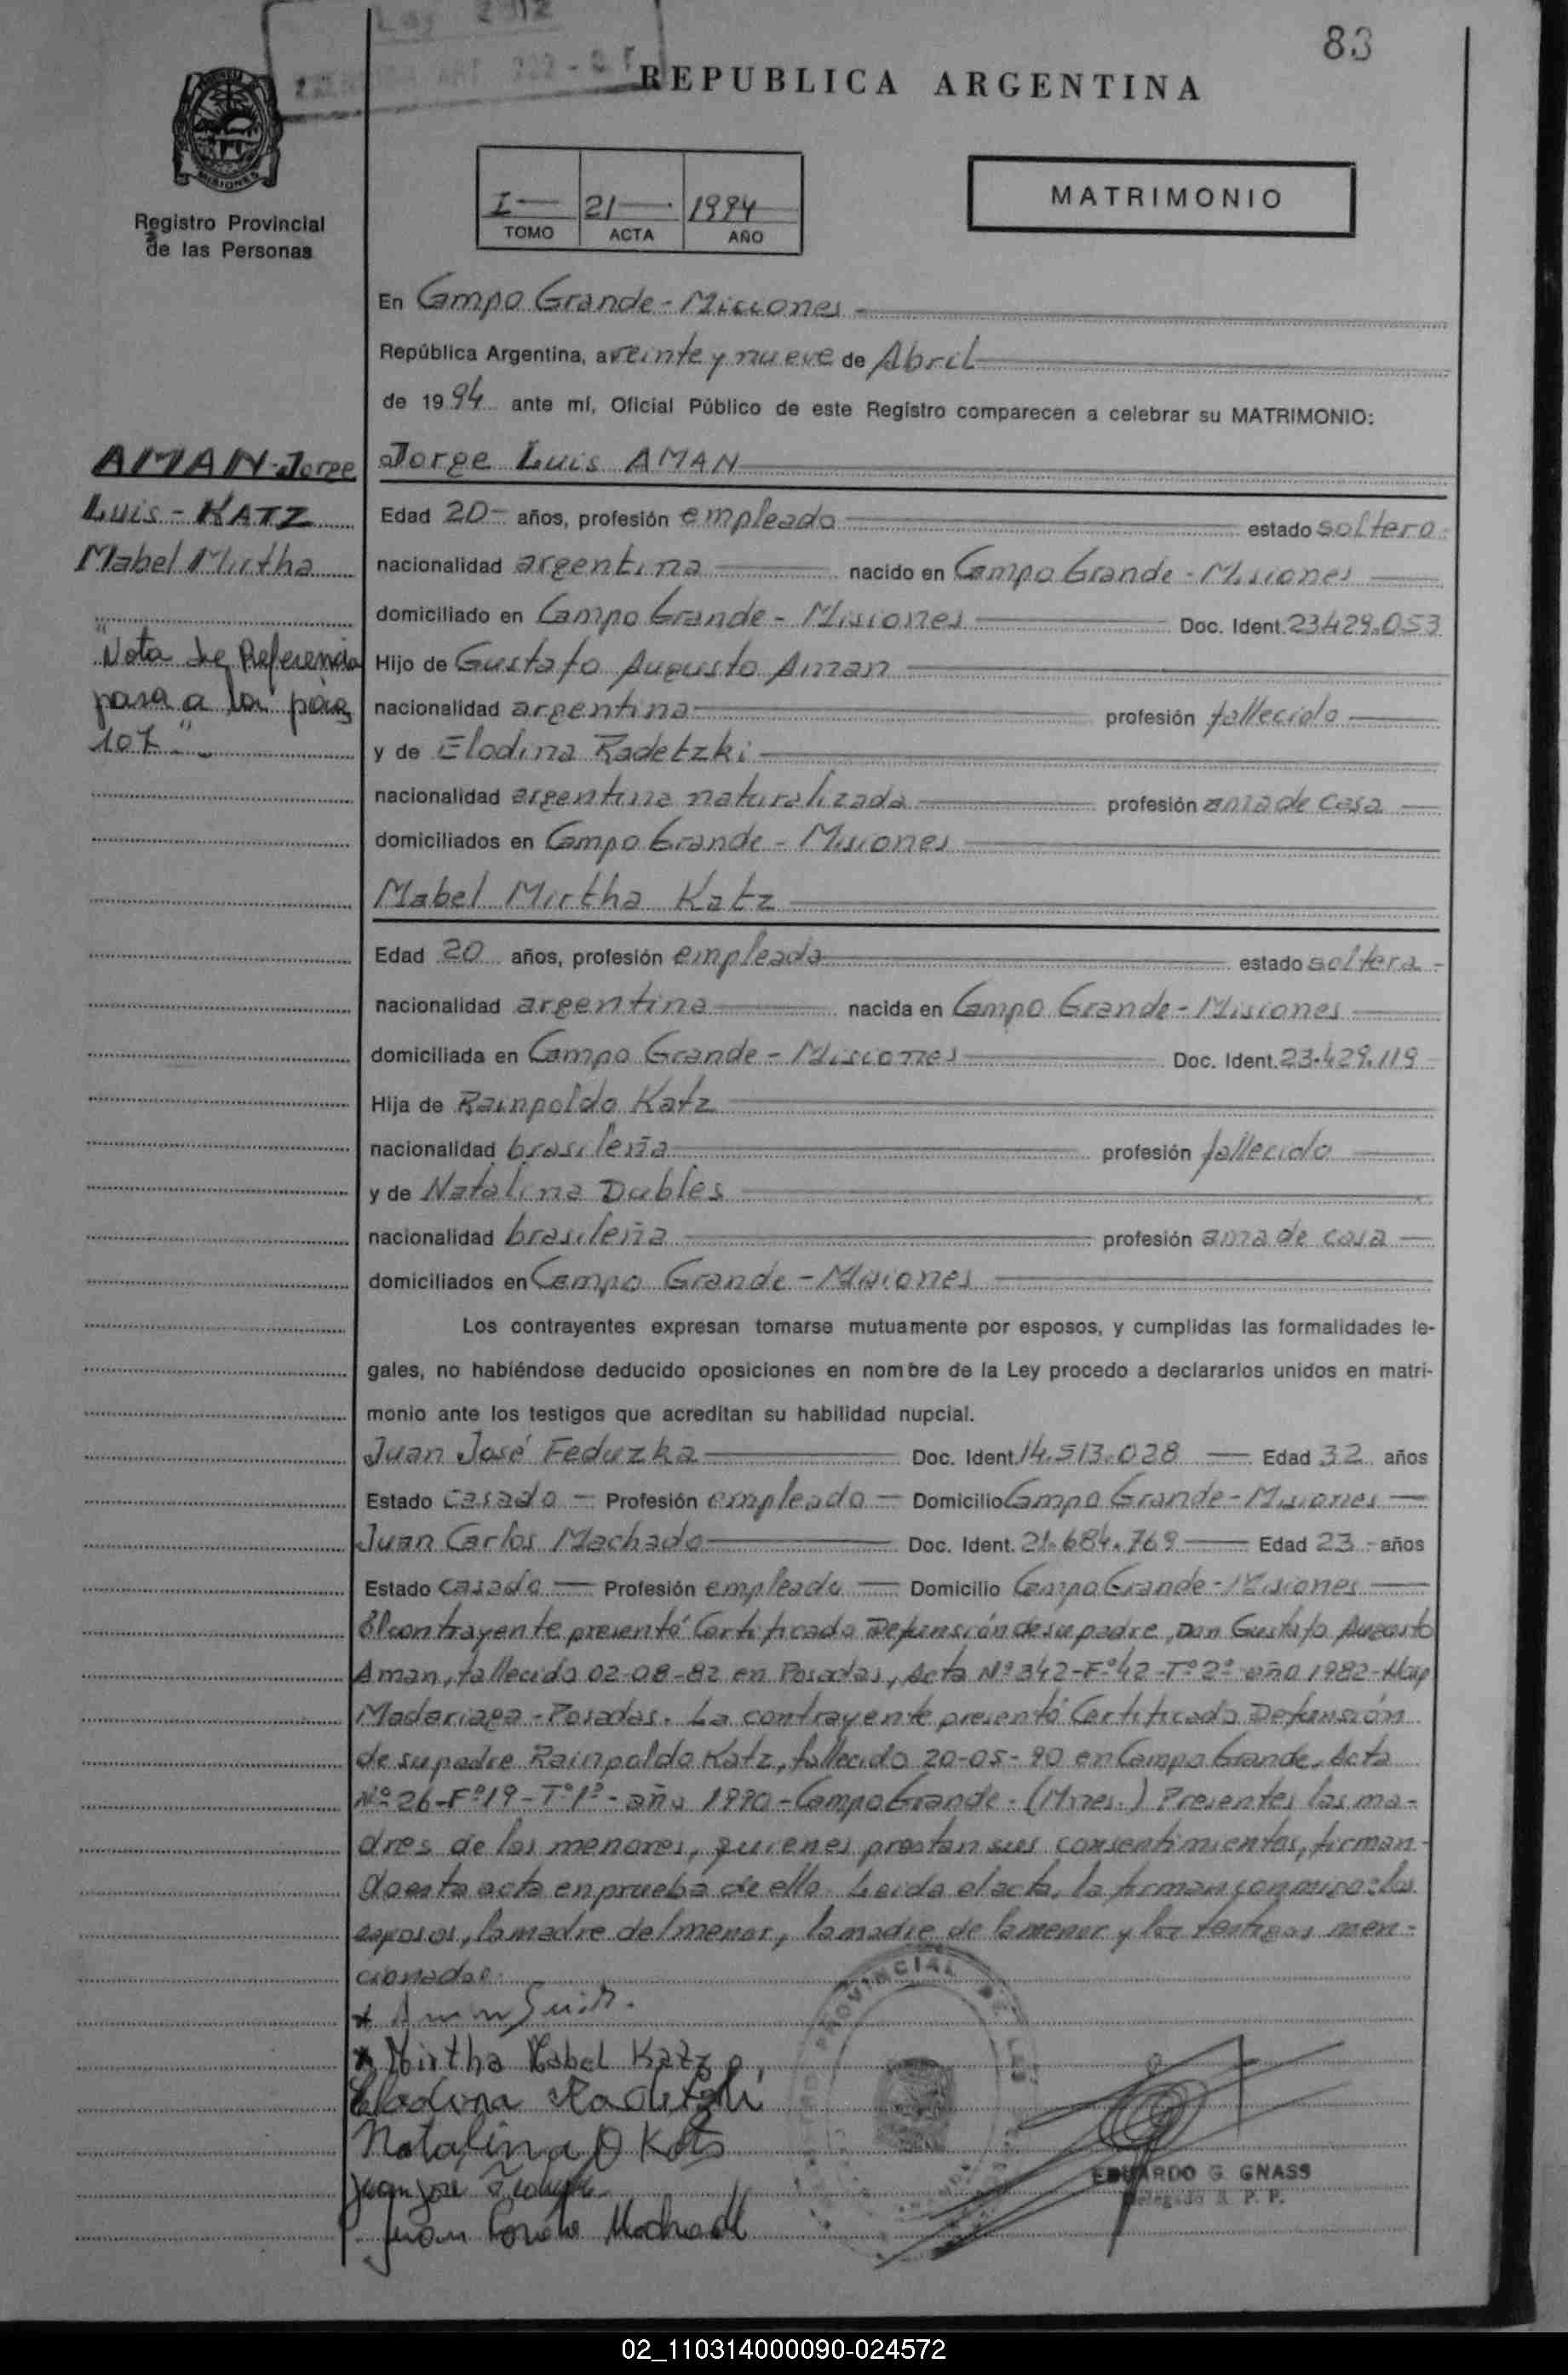 Ley 2912
83
REPUBLICA ARGENTINA
MISIONES
Registro Provincial
de las Personas
I 21 1994
TOMO ACTA AÑO
MATRIMONIO
En Campo Grande - Misiones
República Argentina, a veinte y nueve de Abril
de 1994 ante mí, Oficial Público de este Registro comparecen a celebrar su MATRIMONIO:
AMAN - Jorge
Luis - KATZ
Mabel Mirtha
"Nota de Referencia
pasa a la pág
107"
Jorge Luis AMAN
Edad 20 años, profesión empleado estado soltero
nacionalidad argentina nacido en Campo Grande - Misiones
domiciliado en Campo Grande - Misiones Doc. Ident. 23.429.053
Hijo de Gustafo Augusto Aman
nacionalidad argentina profesión fallecido
y de Elodina Radetzki
nacionalidad argentina naturalizada profesión ama de casa
domiciliados en Campo Grande - Misiones
Mabel Mirtha Katz
Edad 20 años, profesión empleada estado soltera
nacionalidad argentina nacida en Campo Grande - Misiones
domiciliada en Campo Grande - Misiones Doc. Ident. 23.429.119
Hija de Rainpoldo Katz
nacionalidad brasileña profesión fallecido
y de Natalina Dubles
nacionalidad brasileña profesión ama de casa
domiciliados en Campo Grande - Misiones
Los contrayentes expresan tomarse mutuamente por esposos, y cumplidas las formalidades le-
gales, no habiéndose deducido oposiciones en nombre de la Ley procedo a declararlos unidos en matri-
monio ante los testigos que acreditan su habilidad nupcial.
Juan José Feduzka Doc. Ident. 14.513.028 Edad 32 años
Estado casado Profesión empleado Domicilio Campo Grande - Misiones
Juan Carlos Machado Doc. Ident. 21.684.769 Edad 23 años
Estado casado Profesión empleado Domicilio Campo Grande - Misiones
El contrayente presentó Certificado Defunsión de su padre, Don Gustafo Augusto
Aman, fallecido 02-08-82 en Posadas, Acta Nº 342-Fº42-Tº2º año 1982-Hosp
Madariaga - Posadas. La contrayente presentó Certificado Defunsión
de su padre Rainpoldo Katz, fallecido 20-05-90 en Campo Grande, Acta
Nº 26-Fº19-Tº1º- año 1990 - Campo Grande - (Mnes.) Presentes las ma-
dres de los menores, quienes prestan sus consentimientos, firman-
do esta acta en prueba de ello. Leida el acta, la firman conmigo: los
esposos, la madre del menor, la madre de la menor y los testigos men-
cionados.
Mirtha Mabel Katz
Elodina Radetzki
Natalina D Katz
Juan José
Juan Machado
PROVINCIAL
EDUARDO G. GNASS
Delegado R. P. P.
02_110314000090-024572